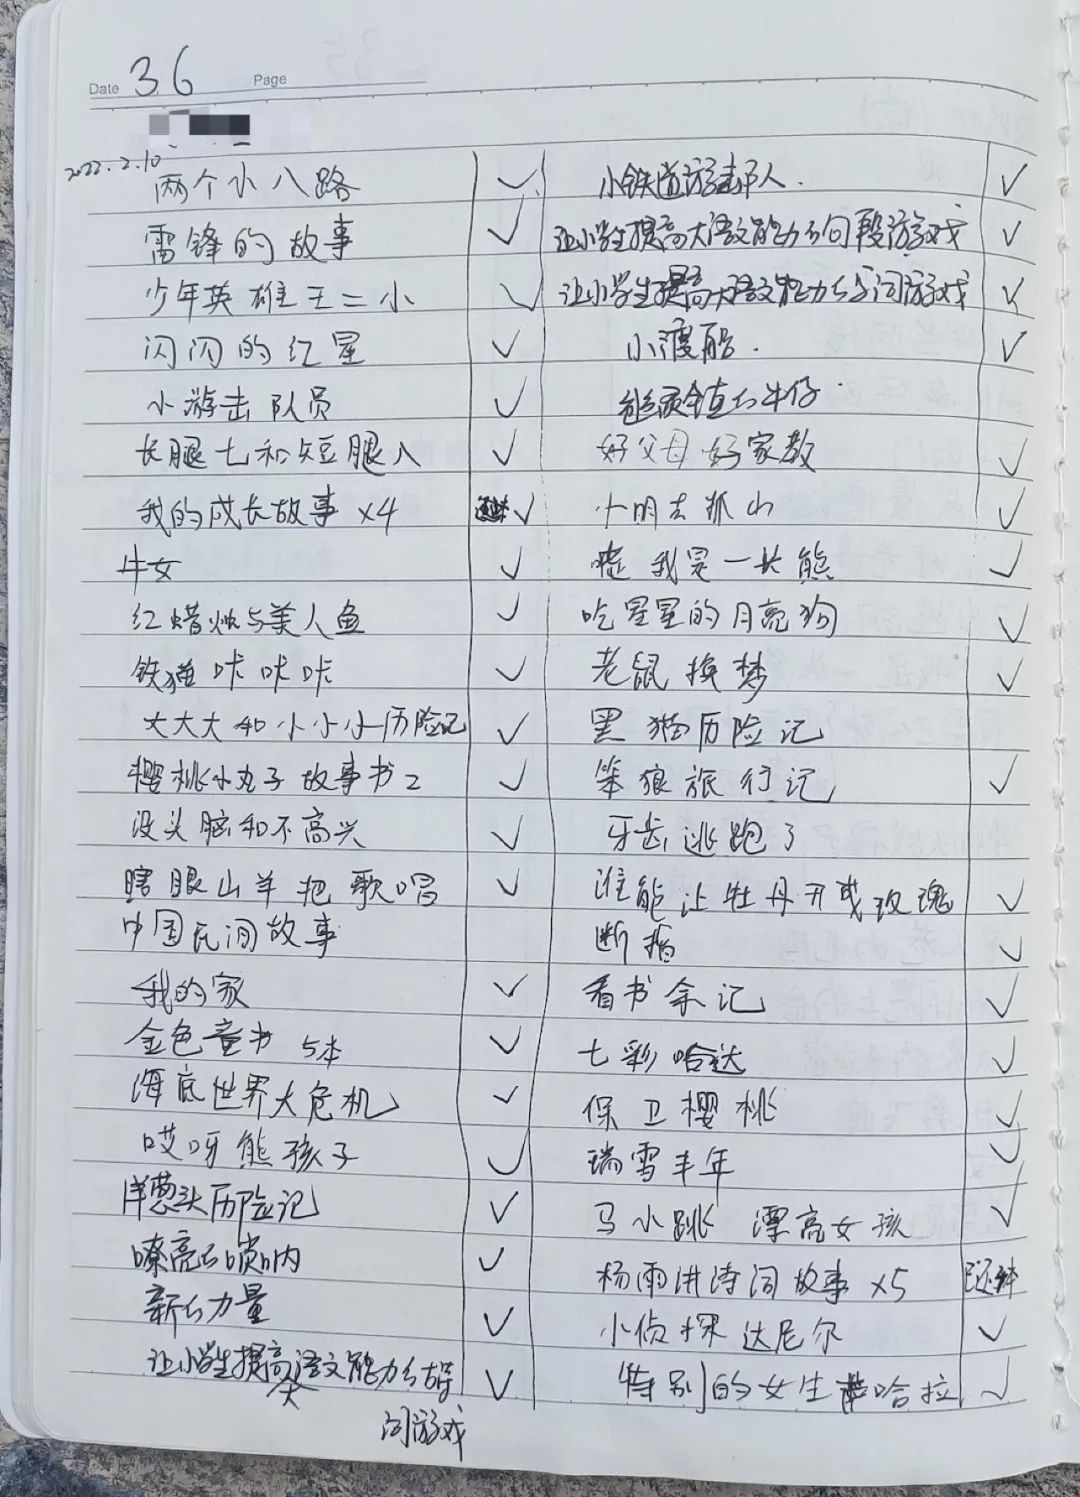 Date 36 Page
2022.2.10
两个小八路 ✓ 小铁道游击队人.
雷锋的故事 ✓ 让小学生提高大语文能力的句段游戏 ✓
少年英雄王二小 ✓ 让小学生提高大语文能力的字词游戏 ✓
闪闪的红星 ✓ 小渡船. ✓
小游击队员 ✓ 牛仔
长腿七和短腿八 ✓ 好父母好家教 ✓
我的成长故事 x4 ✓ 小明去孤山 ✓
牛女 ✓ 嘘 我是一长熊 ✓
红蜡烛与美人鱼 ✓ 吃星星的月亮狗 ✓
铁猫咔咔咔 ✓ 老鼠换梦 ✓
大大大和小小小历险记 ✓ 黑猫历险记
樱桃小丸子故事书2 ✓ 笨狼旅行记 ✓
没头脑和不高兴 ✓ 牙齿逃跑了
瞎眼山羊把歌唱 ✓ 谁能让牡丹开成玫瑰 ✓
中国民间故事 断指 ✓
我的家 ✓ 看书余记 ✓
金色童书 5本 ✓ 七彩哈达 ✓
海底世界大危机 ✓ 保卫樱桃 ✓
哎呀熊孩子 ✓ 瑞雪丰年 ✓
洋葱头历险记 ✓ 马小跳 漂亮女孩 ✓
嘹亮的唢呐 ✓ 杨雨讲诗词故事 x5
新的力量 ✓ 小侦探达尼尔 ✓
让小学生提高大语文能力的 ✓ 特别的女生 哈拉 ✓
词游戏